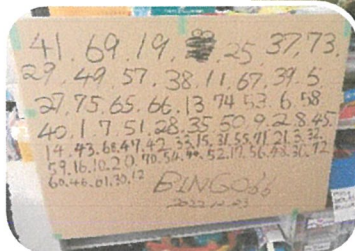 41. 69. 19. 25. 37. 73.
29. 49. 57. 38. 11. 67. 39. 5
27. 75. 65. 66. 13. 74 53. 6. 58
40. 1. 7. 51. 28. 35 50. 9. 2. 8. 45.
14. 43. 68. 47. 42. 33. 15. 31. 55. 71. 21. 3. 32.
59. 16. 10. 20. 70. 54. 44. 52. 17. 56. 48. 36. 72
60. 46. 61. 30. 12
BINGO